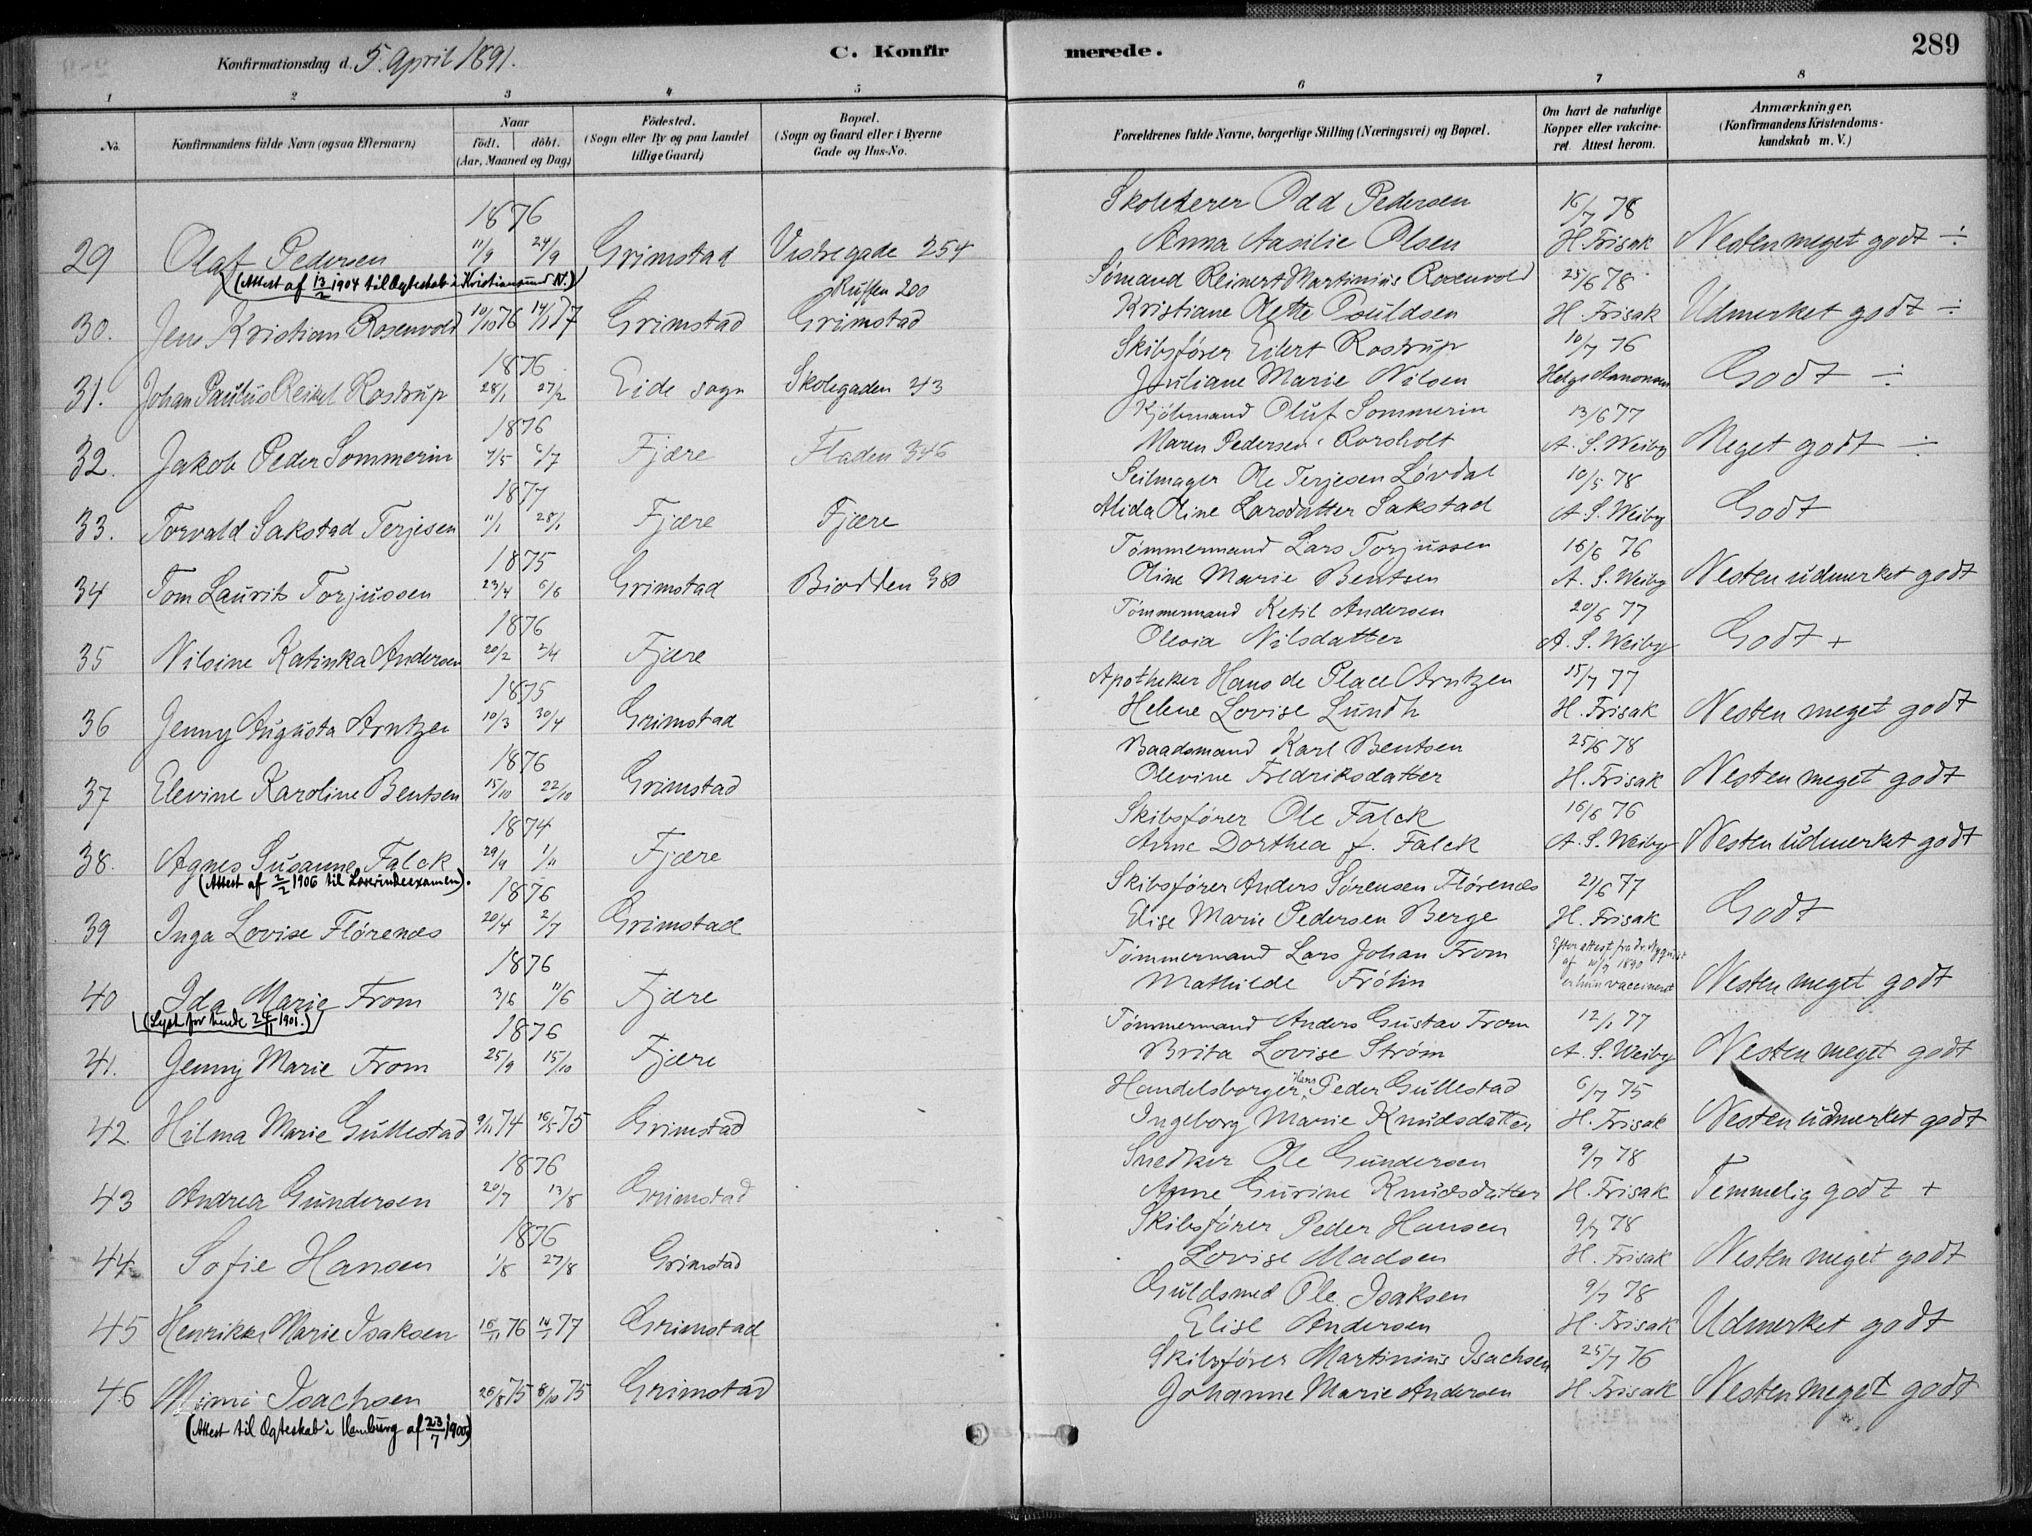 289
Konfirmationsdag d. 5. April 1891.
C. Konfirmerede.
1 2 3 4 5 6 7 8
No.
Konfirmandens fulde Navn (ogsaa Efternavn)
Naar
födt. döbt.
(Aar, Maaned og Dag)
Födested.
(Sogn eller By og paa Landet
tillige Gaard)
Bopæl.
(Sogn og Gaard eller i Byerne
Gade og Hus-No.
Forældrenes fulde Navne, borgerlige Stilling (Næringsvei) og Bopæl.
Om havt de naturlige
Kopper eller vakcine-
ret. Attest herom.
Anmærkninger.
(Konfirmandens Kristendoms-
kundskab m. V.)
1876 Skolelærer Odd Pedersen 16/7 78
29 Olaf Pedersen 11/9 24/9 Grimstad Vestregade 254 Anna Aasilie Olsen H. Frisak Nesten meget godt ÷
(Attest af 13/2 1904 til Ægteskab i Kristiansund N.) Sømand Reinert Martinius Rosenvold 25/6 78
200
30. Jens Kristian Rosenvold 10/10 76 14/1 77 Grimstad Grimstad Kristiane Olette H. Frisak Udmerket godt ÷
1876 Skibsfører Eilert Rostrup 10/7 76
31. Johan Paulus Rostrup 28/1 27/2 Eide sogn Skolegaden 43 Juliane Marie Nilsen Godt ÷
1876 Oluf Sommerin 13/6 77
32. Jakob Peder Sommerin 7/5 6/7 Fjære Fladen 346 Maren Pedersen Korsholt A. S. Weiby Meget godt ÷
1877 Seilmager Ole Terjesen Løvdal 10/5 78
33. Torvald Sakstad Terjesen 11/1 28/1 Fjære Fjære Alida Oline Larsdatter Sakstad A. S. Weiby Godt
1875 Tømmermand Lars Torjussen 16/6 76
34 Tom Laurits Torjussen 23/4 6/6 Grimstad Biodden 380 Oline Marie Bentsen A. S. Weiby Nesten udmerket godt
1876 Tømmermand Ketil Andersen 20/6 77
35 Nilsine Katinka Andersen 20/2 2/4 Fjære Olevia Nilsdatter A. S. Weiby Godt +
1875 Apotheker Hans de Place Arntzen 15/7 77
36 Jenny Augusta Arntzen 10/3 30/4 Grimstad Helene Lovise Lundh H. Frisak Nesten meget godt
1876 Baadsmand Karl Bentsen 25/6 78
37 Elevine Karoline Bentsen 15/10 22/10 Grimstad Olevine Fredriksdatter H. Frisak Nesten meget godt
1874 Skibsfører Ole Falck 16/6 76
38. Agnes Susanne Falck 29/9 1/11 Fjære Anne Dorthea f. Falck A. S. Weiby Nesten udmerket godt
(Attest af 2/2 1906 til Lærerindeexamen).
1876 Skibsfører Anders Sørensen Flørenæs 21/6 77
39 Inga Lovise Flørenæs 20/4 2/7 Grimstad Elise Marie Pedersen Berge H. Frisak Godt
1876 Tømmermand Lars Johan From Efter attest fra Dr.
af 1890
40 Ida Marie From 3/6 11/6 Fjære Mathilde Fröhn er hun vaccineret Nesten meget godt
(Lyst for hende 1901.)
1876 Tømmermand Anders Gustav From 12/1 77
41. Jenny Marie From 25/9 15/10 Fjære Brita Lovise Strøm A. S. Weiby Nesten meget godt
Handelsborger Hans Peder Gullestad 6/7 75
42. Hilma Marie Gullestad 9/11 74 16/5 75 Grimstad Ingeborg Marie Knudsdatter H. Frisak Nesten udmerket godt
1876 Snedker Ole Gundersen 9/7 78
43 Andrea Gundersen 20/7 13/8 Grimstad Anne Gurine Knudsdatter H. Frisak Temmelig godt +
1876 Skibsfører Peder Hansen 9/7 78
44. Sofie Hansen 1/8 27/8 Grimstad Lovise Madsen H. Frisak Nesten meget godt
Guldsmed Ole Isaksen 9/7 78
45 Henrikke Marie Isaksen 16/11 76 14/1 77 Grimstad Elise Andersen H. Frisak Udmerket godt
Skibsfører Martinius Isachsen 25/7 76
46 Mimi Isachsen 26/8 75 8/10 75 Grimstad Johanne Marie Andersen H. Frisak Nesten meget godt
(Attest til Ægteskab i Hamburg af 23/7 1900)